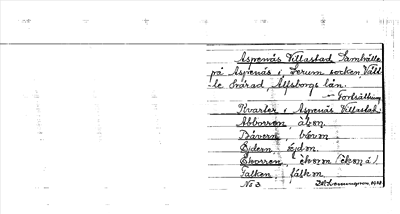 Aspenäs Villastad, Samhälle
på Aspenäs i Lerum socken, Vätt-
le härad, Älfsborgs län.
— Fortsättning
Kvarter i Aspenäs Villastad:
Abborren, åbọrn.
Bävern, bävorn
Ejdern, ejdrn.
Ekorren,
Falken, falkrn.
No 3